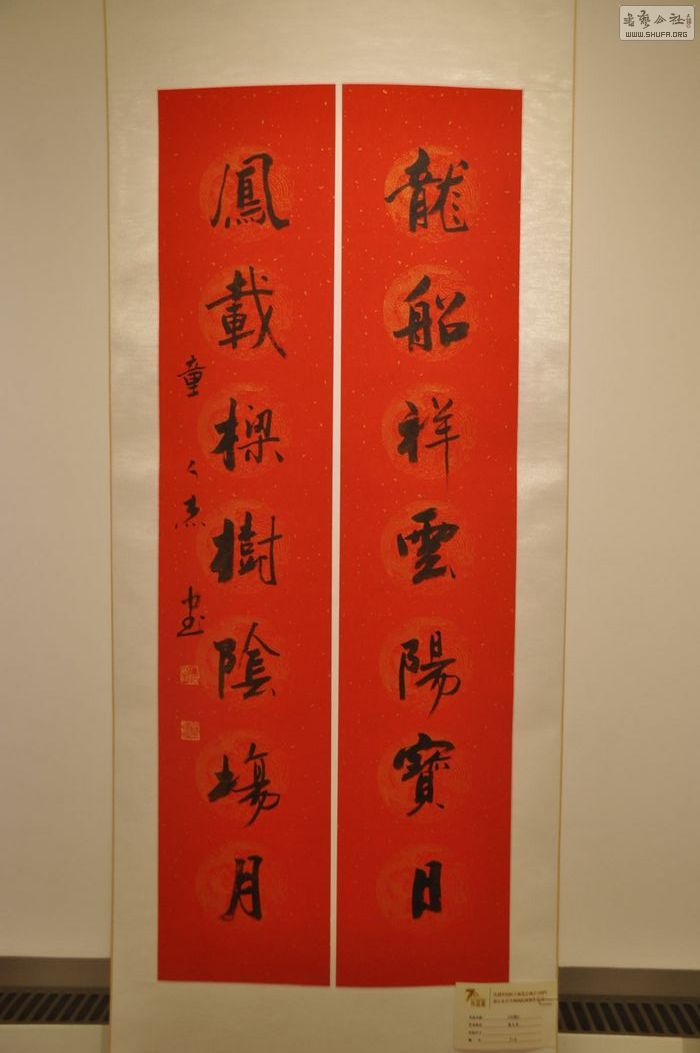 龍船祥雲陽寶日
鳳載樑樹陰場月
童人杰書
書藝公社
WWW.SHUFA.ORG